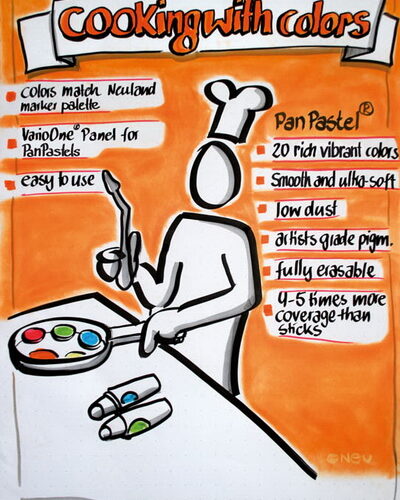 cooking with colors
colors match Neuland
marker palette
VarioOne® Panel for
PanPastels
easy to use
PanPastel®
20 rich vibrant colors
Smooth and ultra-soft
low dust
artists grade pigm.
fully erasable
4-5 times more
coverage than
sticks